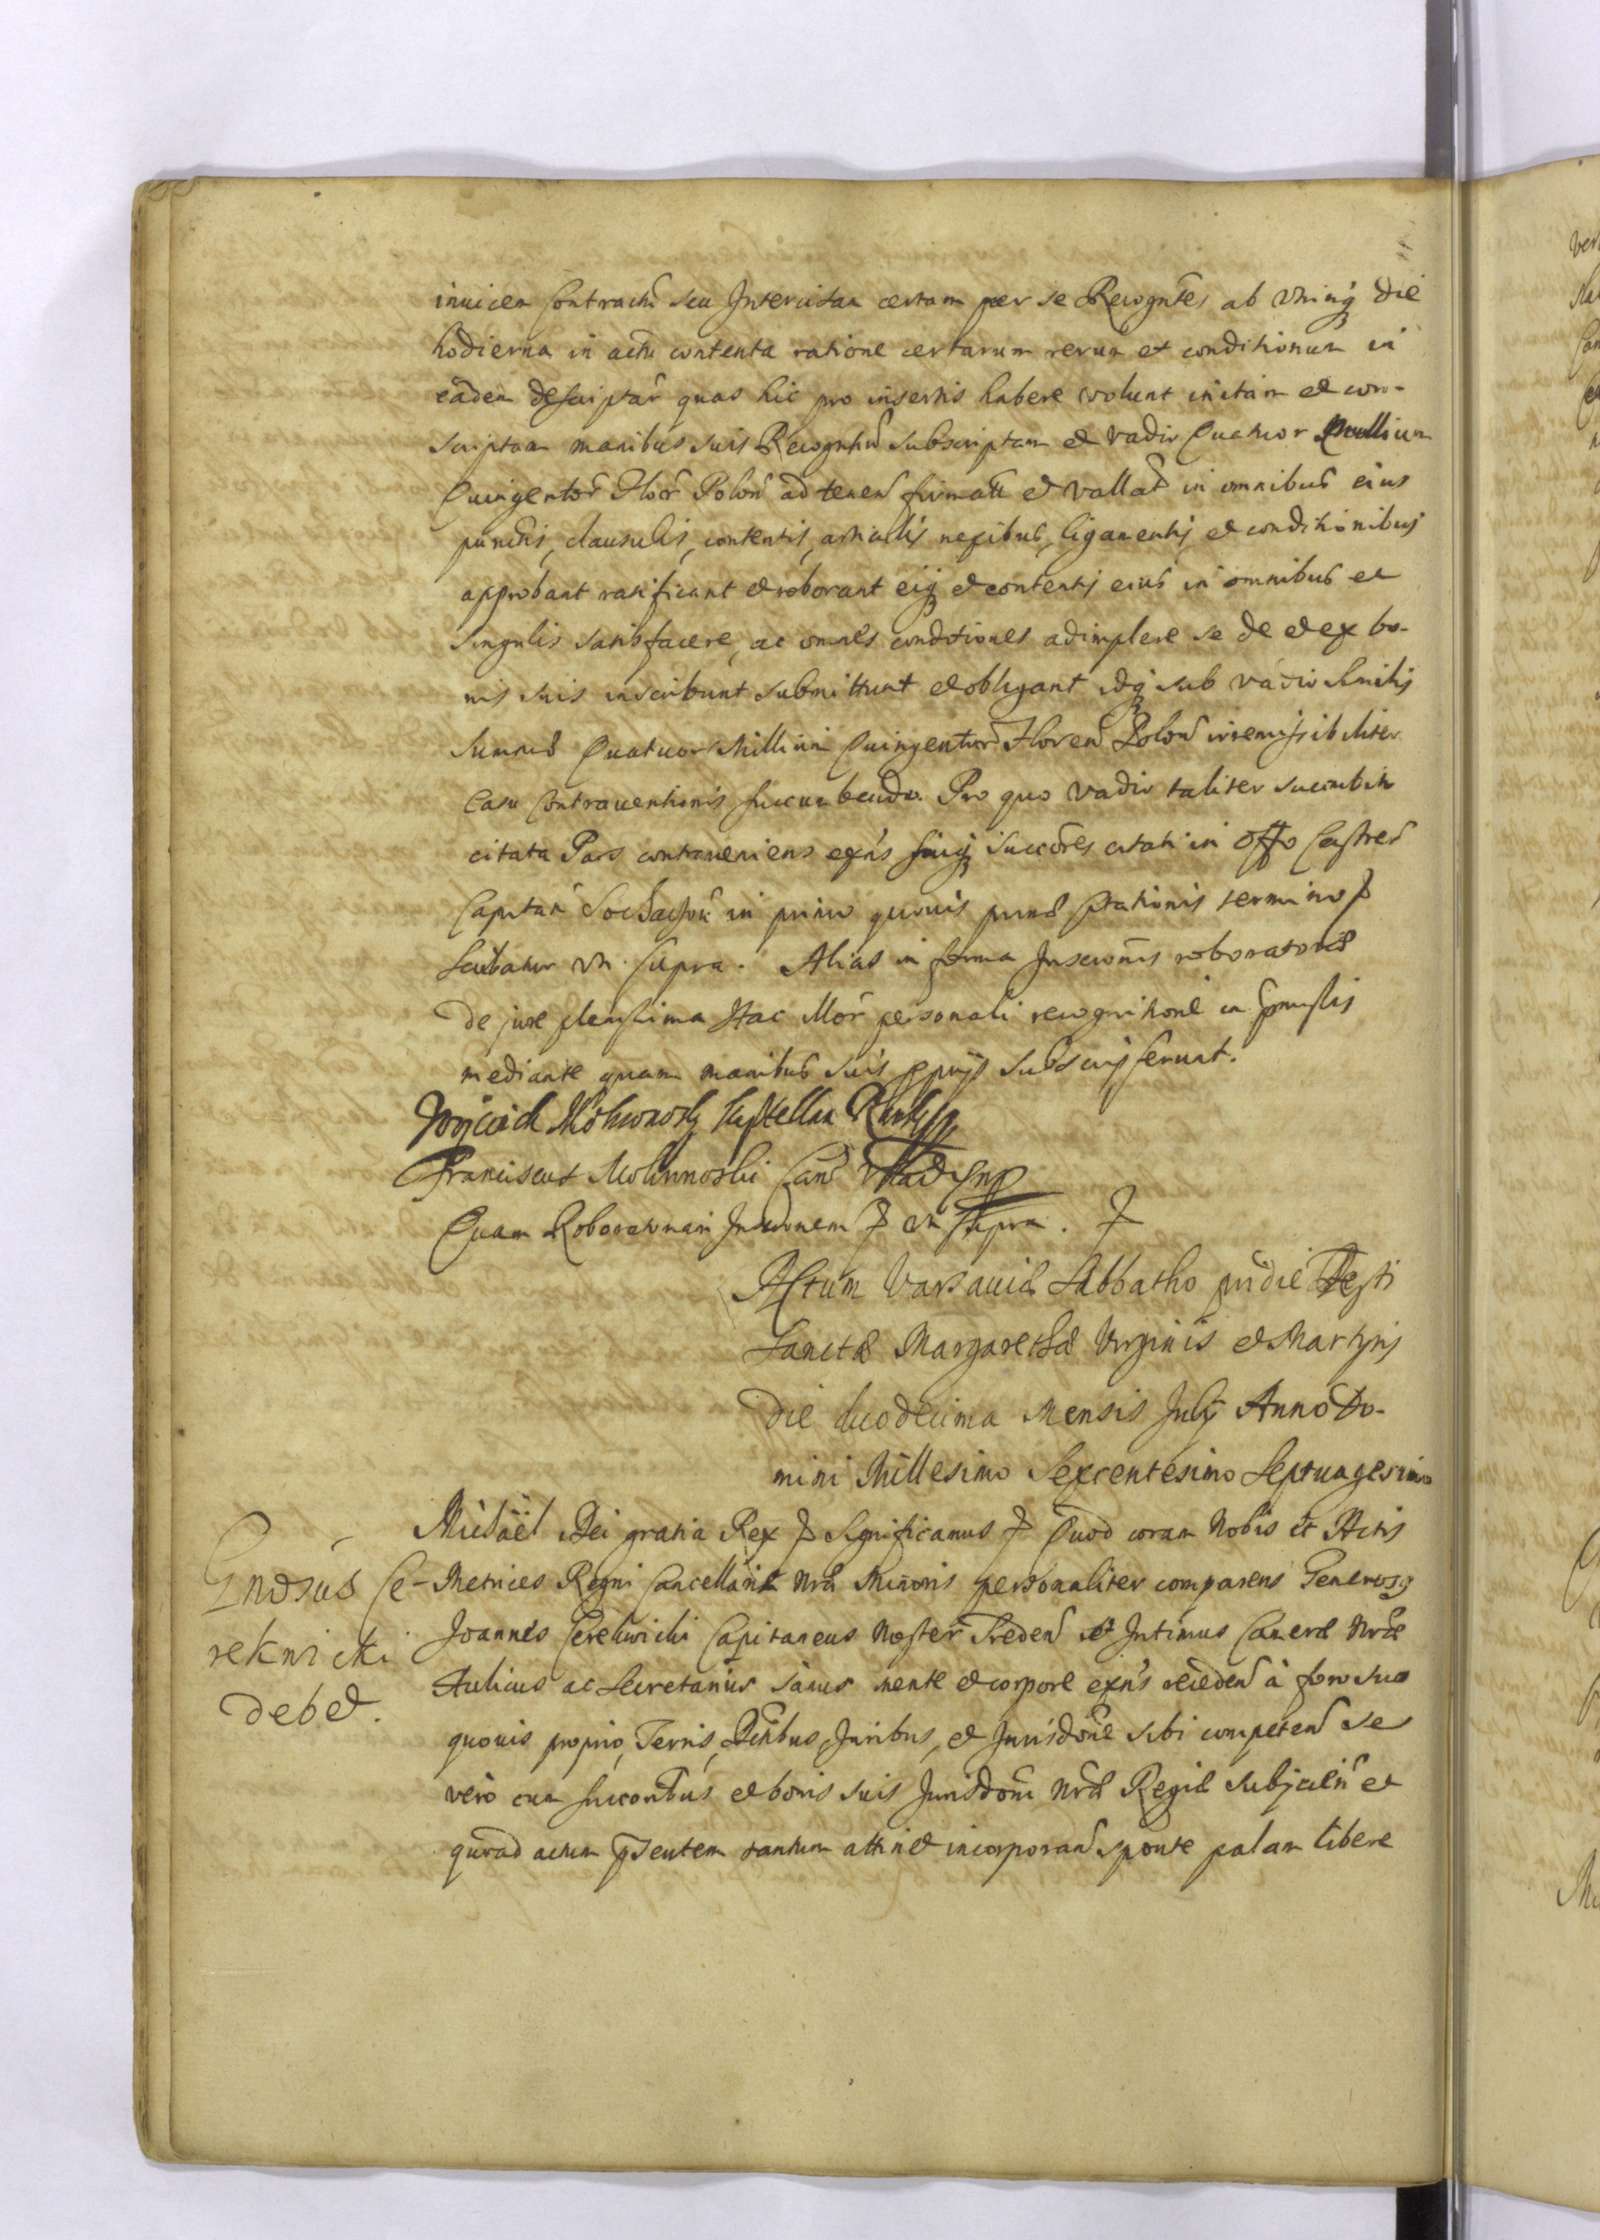 inuicem Contractū seu Intercisam certam per se Recogntēs ab vtrinq die
hodierna in actu contenta ratione certarum rerum et conditionum in
eadem descriptar quas hic pro insertis habere volunt initam et con-
scriptam manibus suis Recogntiū subscriptam et vadio Quatuor Millium
Quingentor Flor Polon ad tenen firmatā et vallat in omnibus eius
punctis, clausulis, contentis, articulis nexibus, ligamentis et conditionibus
approbant ratificant et roborant eiq et contentis eius in omnibus et
singulis satisfacere, ac omnes conditiones adimplere se de et ex bo-
nis suis inscribunt submittunt et obligant idq sub vadio similis
summæ Quatuor Millium Quingentor Floren Polon irremissibiliter
Casu Contrauentionis succumbendo. Pro quo vadio taliter succumbito
citata Pars contraueniens exn̄s suiq succōres citati in Offo Castren
Capitan Sochaczou in primo quouis
citationis termino
ut supra. Alias in forma Inscrōnis roboratoriæ
de jure plenissima Hac Mor personali recognitione
mediante quam manibus suis pprijs subscripserunt.
Woyciech
Franciscus
Quam Roboratoriam Inscrōnem ut supra.
Actum Varsauiæ Sabbatho pridie Festi
Sanctæ Margarethæ Virginis et Martyris
die duodecima Mensis Julij Anno Do-
mini Millesimo Sexcentesimo Septuagesimo
Michaël Dei gratia Rex Significamus Quod coram Nobis et Actis
Gnosus Ce- Metrices Regni Cancellariæ Nræ Minoris personaliter comparens Generosq
rekwicki Joannes Cerekwicki Capitaneus Noster Sreden et Intimus Cameræ Nræ
debet. Aulicus ac Secretarius sanus mente et corpore exn̄s receden à foro suo
quouis proprio, Terris, Juribus, et Jurisdōne sibi competen se
vero cum succoribus et bonis suis Jurisdōni Nræ Regiæ subjcien et
quoad actum pntem tantum attinet incorporan sponte palam libere